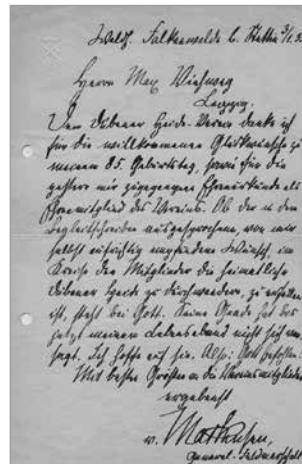 Waldh. Falkenwalde b. Stettin
Herrn Max Viehweg
Leipzig.
Dem Dübener Heide-Verein danke ich
für die willkommenen Glückwünsche zu
meinem 85. Geburtstag, sowie für die
gestern mir zugegangene Ehrenurkunde als
Ehrenmitglied des Vereins. Ob der in dem
Begleitschreiben ausgesprochene, von mir
selbst aufrichtig empfundene Wunsch, im
Kreise der Mitglieder die heimatliche
Dübener Heide zu durchwandern, zu erfüllen
ist, steht bei Gott. Seine Gnade hat bis
jetzt meinem Lebensabend nicht sich ver-
sagt. Ich hoffe auf sie. Also: Gott befohlen!
Mit besten Grüßen an die Vereinsmitglieder
ergebenst
v. Mackensen,
General-Feldmarschall